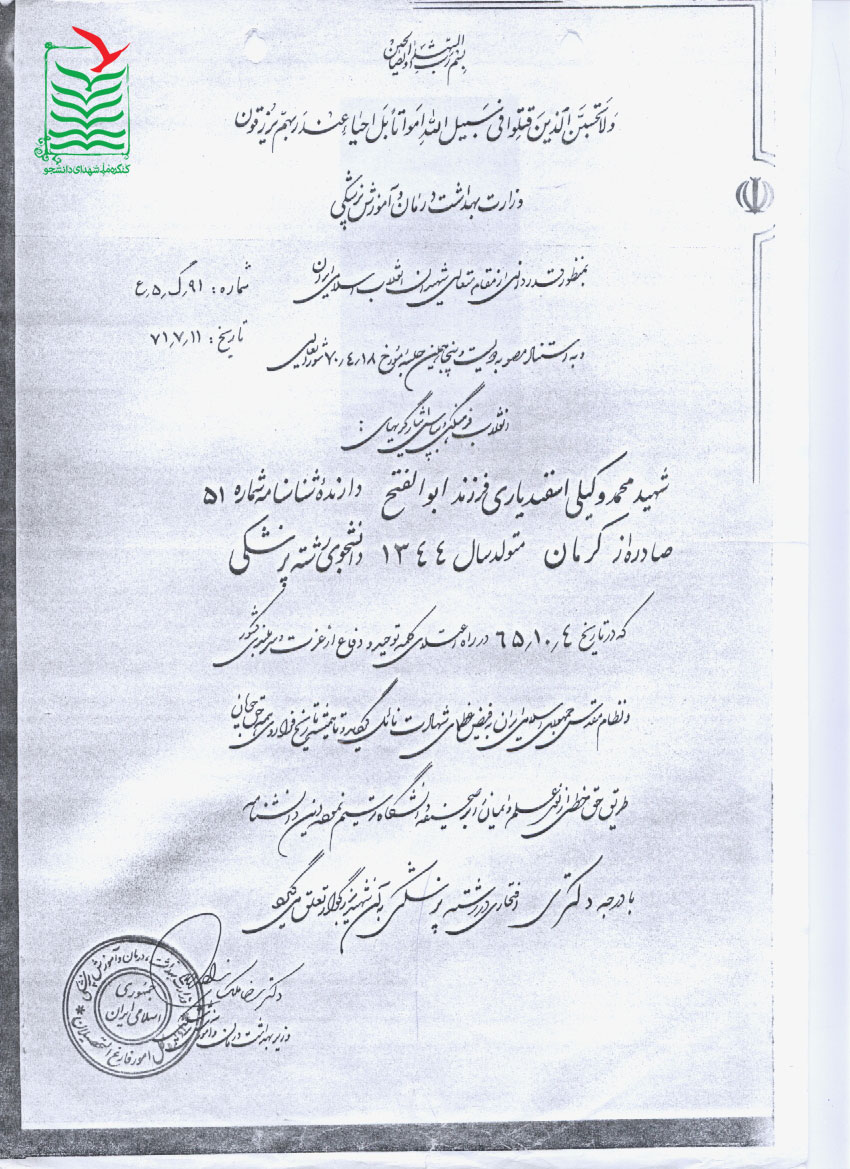 بسم رب الشهداء والصدیقین
ولا تحسبن الذین قتلوا فی سبیل الله امواتا بل احیاء عند ربهم یرزقون
کنگره ملی شهدای دانشجو
وزارت بهداشت درمان و آموزش پزشکی
شماره: ۹۱٫گ٫۵٫ع
تاریخ: ۷۱٫۷٫۱۱
بمنظور قدردانی از مقام متعالی شهیدان انقلاب اسلامی ایران
و به استناد مصوبه دویست و پنجاهمین جلسه مورخ ۷۰٫۴٫۱۸ شورایعالی
انقلاب فرهنگی بپاس ایثارگریهای :
شهید محمد وکیلی اسفندیاری فرزند ابوالفتح دارنده شناسنامه شماره ۵۱
صادره از کرمان متولد سال ۱۳۴۴ دانشجوی رشته پزشکی
که در تاریخ ۶۵٫۱۰٫۴ در راه اعتلای کلمه توحید و دفاع از عزت و سربلندی کشور
و نظام مقدس جمهوری اسلامی ایران به فیض عظمای شهادت نائل گردیده تا همیشه تاریخ فرا روی همه حق جویان
طریق حق خطی از نور علم و ایمان بر صحیفه دانشگاه ترسیم نموده این دانشنامه
با درجه دکترای افتخاری در رشته پزشکی به آن شهید بزرگوار تعلق می گیرد
دکتر رضا ملک زاده
وزیر بهداشت درمان و آموزش
وزارت بهداشت، درمان و آموزش پزشکی
جمهوری
اسلامی ایران
امور فارغ التحصیلان